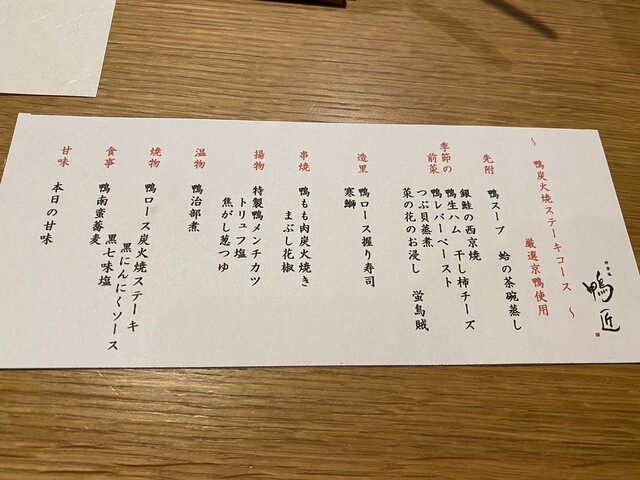 鴨匠
～ 鴨炭火焼ステーキコース ～
厳選京鴨使用
先附
鴨スープ 蛤の茶碗蒸し
季節の
前菜
銀鮭の西京焼
鴨生ハム 干し柿チーズ
鴨レバーペースト
つぶ貝蒸煮
菜の花のお浸し 蛍烏賊
造里
鴨ロース握り寿司
寒鰤
串焼
鴨もも肉炭火焼き
まぶし花椒
揚物
特製鴨メンチカツ
トリュフ塩
焦がし葱つゆ
温物
鴨治部煮
焼物
鴨ロース炭火焼ステーキ
黒にんにくソース
食事
鴨南蛮蕎麦
黒七味塩
甘味
本日の甘味